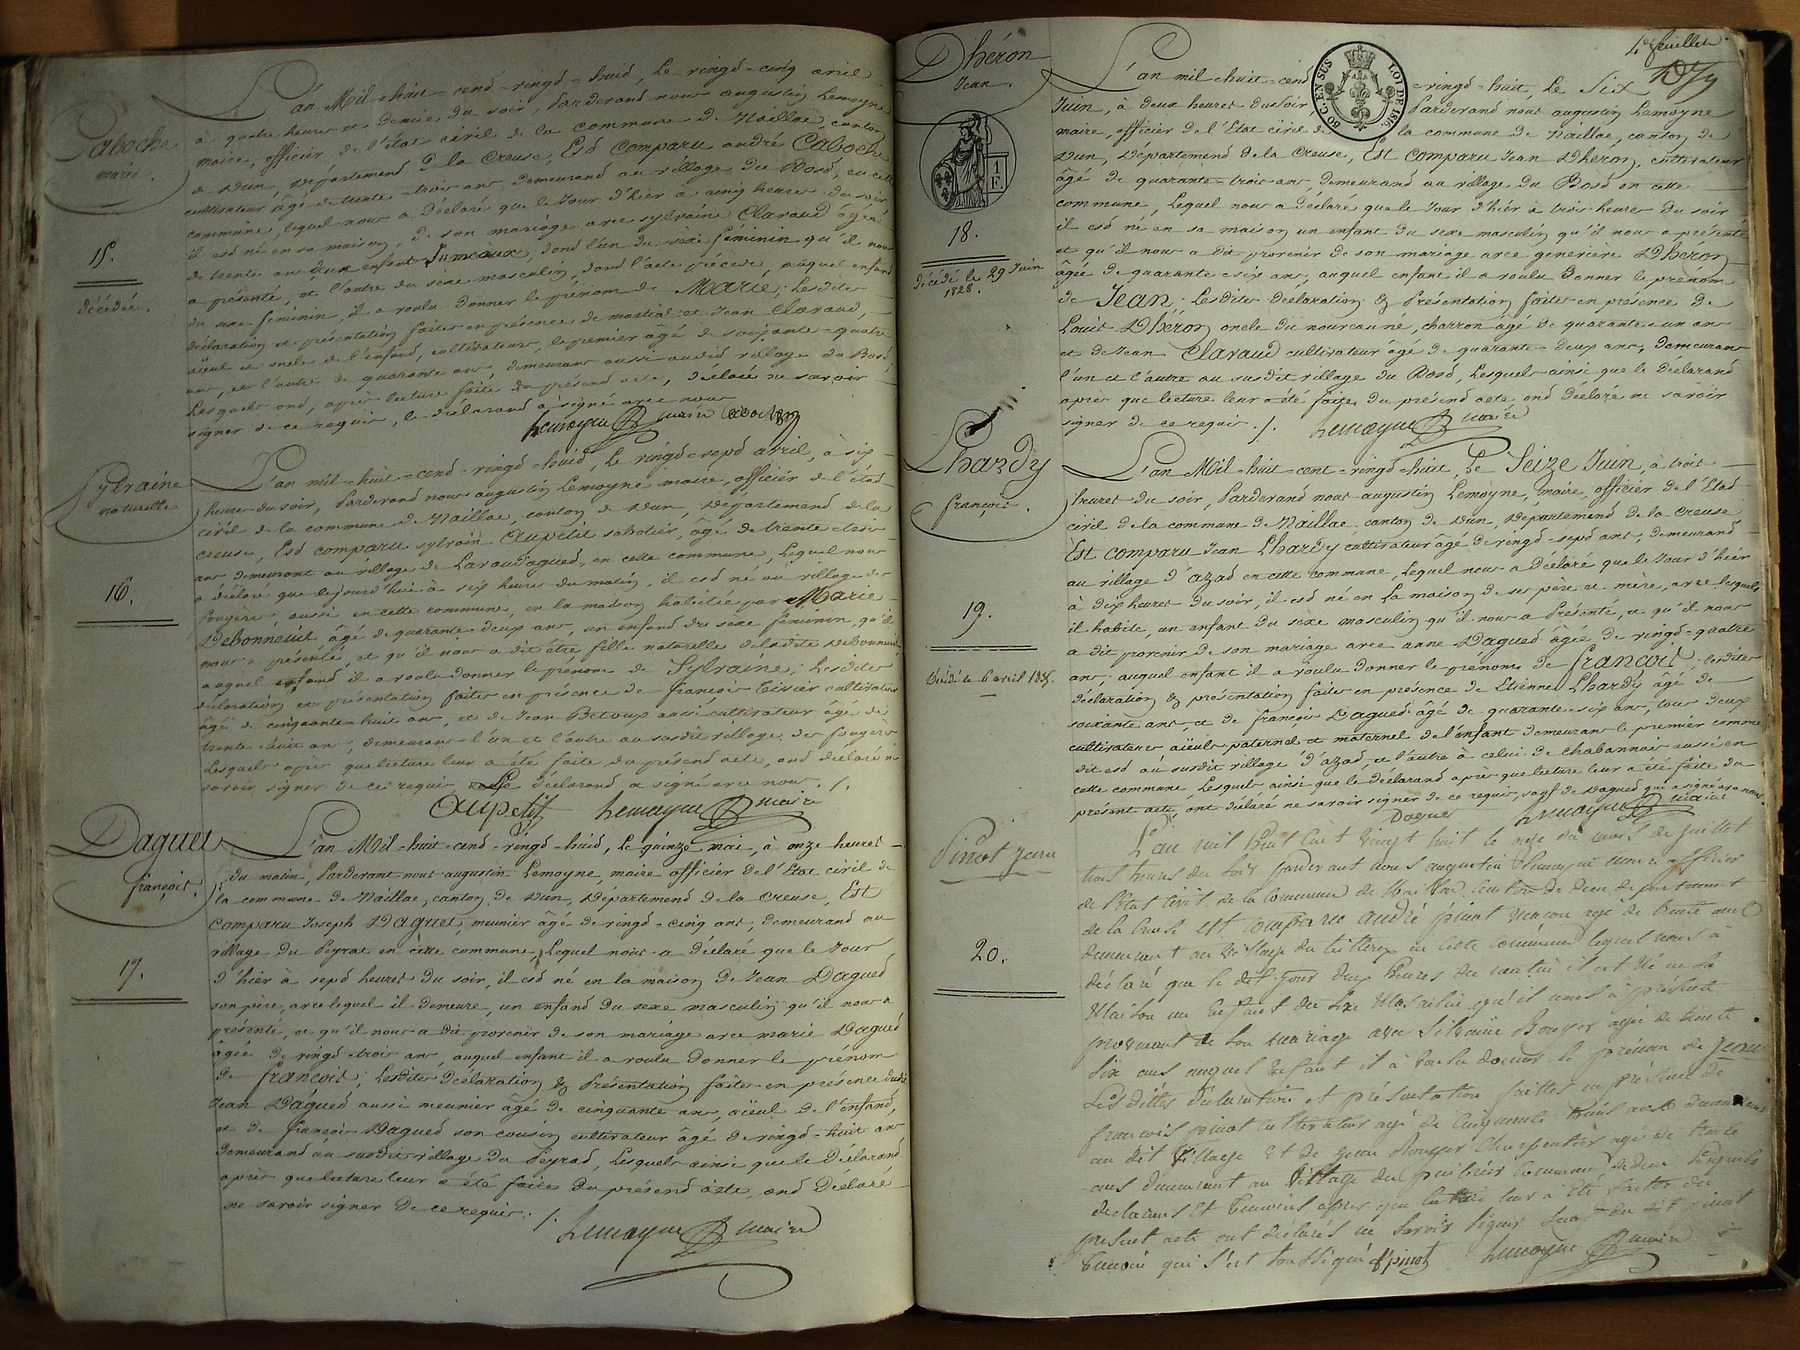 Caboche
marie.
15.
décédée.
L'an Mil-huit-cend-vingd-huid, Le vingd-cinq avril
à quatre heures et demie du soir, Pardevand nous augustin Lemoyne
maire, officier de l'état civil de la commune de Naillac, canton
de Dun, département de la Creuse, Esd comparu andré Caboche
cultivateur âgé de trente-trois ans, demeurand au village du Bosd, en cette
commune, lequel nous a déclaré que le Jour d'hier à cinq heures du soir
il esd né en sa maison, de son mariage avec sylvaine Claraud âgée
de trente ans deux enfans Jumeaux, dond l'un du sèxe féminin qu'il nous
a présenté, et l'autre du sèxe masculin, dond l'acte précède, auquel enfand
du sexe féminin, il a voulu donner le prénom de Marie; Lesdites
déclaration et présentation faites en présence de martial et Jean Claraud,
aïeul et oncle de l'enfand, cultivateurs, le premier âgé de soixante-quatre
ans, et l'autre de quarante ans, demeurans aussi audid village du Bosd,
Lesquels ond, après lecture faite du présend acte, déclaré ne savoir
signer de ce requis, le déclarand a signé avec nous
Lemoyne maire Caboche
Sylvaine
naturelle
16.
L'an mil-huit-cend-vingd-huid, Le vingd-sepd avril, à six
heures du soir, Pardevand nous augustin Lemoyne maire, officier de l'état
civil de la commune de Naillac, canton de Dun, Département de la
creuse, Esd comparu sylvain Aupetit sabotier, âgé de trente-trois
ans demeurant au village de Lavaudagued, en cette commune, Lequel nous
a déclaré que cejourd'hui à six heures du matin, il esd né au village des
fougères, aussi en cette commune, en la maison habitée par Marie
Debonneuil âgé de quarante-deux ans, un enfand du sexe féminin, qu'il
nous a présenté, et qu'il nous a dit être fille naturelle de ladite Debonneuil
auquel enfand il a voulu donner le prénom de Sylvaine; Lesdites
déclaration et présentation faites en présence de françois Tixier cultivateur
âgé de cinquante-huit ans, et de Jean Betoup aussi cultivateur âgé de
trente-huit ans, demeurans l'un et l'autre au susdit village des fougères
Lesquels après que lecture leur a été faite du présend acte, ond déclaré ne
savoir signer de ce requis Le déclarand a signé avec nous ./.
Aupetit Lemoyne maire
Daguet
françois.
17.
L'an Mil-huit-cend-vingd-huid, Le quinze mai, à onze heures
du matin, Pardevant nous augustin Lemoyne, maire officier de l'Etat civil de
la commune de Naillac, canton de Dun, Département de la Creuse, Est
comparu Joseph Daguet meunier âgé de vingd-cinq ans, demeurand au
village du Peyrat en cette commune, Lequel nous a déclaré que le Jour
d'hier à sepd heures du soir, il esd né en la maison de Jean Dagued
son père, avec lequel il demeure, un enfand du sexe masculin qu'il nous a
présenté, et qu'il nous a dit provenir de son mariage avec marie Dagued
âgée de vingd-trois ans, auquel enfant il a voulu donner le prénom
de françois; Lesdites Déclaration & Présentation faites en présence dudit
Jean Dagued aussi meunier âgé de cinquante ans, aïeul de l'enfand,
et de françois Dagued son cousin cultivateur âgé de vingd-huit ans
demeurand au susdit village du Peyrad, Lesquels ainsi que le Déclarand
après que lecture leur a été faite du présend acte, ond Déclaré
ne savoir signer de ce requis. /.
Lemoyne maire
4e feuillet
Dhéron
Jean.
1 F.
18.
décédé le 29 Juin
1828.
BO. C. EN SUS LOI DE 1816.
L'an mil-huit-cend-vingd-huit, Le Six
Juin, à deux heures du soir Pardevand nous augustin Lemoyne
maire, officier de l'Etat civil de la commune de Naillac, canton de
Dun, Département de la Creuse, Est comparu Jean Dhéron, cultivateur
âgé de quarante-trois ans, demeurand au village du Bosd en cette
commune, Lequel nous a déclaré que le Jour d'hier à trois heures du soir
il esd né en sa maison un enfant du sexe masculin qu'il nous a présenté
et qu'il nous a dit provenir de son mariage avec geneviève Dhéron
âgée de quarante-six ans, auquel enfant il a voulu donner le prénom
de Jean; Lesdites Déclaration & Présentation faites en présence de
Louis Dhéron oncle du nouveau né, charron âgé de quarante-un ans
et de Jean Claraud cultivateur âgé de quarante-deux ans, demeurans
l'un et l'autre au susdit village du Bosd, Lesquels ainsi que le Déclarand
après que lecture leur a été faite du présend acte ond déclaré ne savoir
signer de ce requis. /. Lemoyne maire
Lhardy
françois.
19.
Décédé le 6 avril 1835.
L'an Mil-huit-cent-vingd-huit, Le Seize Juin, à trois
heures du soir, Pardevand nous augustin Lemoyne, maire, officier de l'Etad
civil de la commune de Naillac canton de Dun, Département de la Creuse
Est comparu Jean Lhardy cultivateur âgé de vingd-sepd ans, demeurand
au village d'azad en cette commune, Lequel nous a Déclaré que le Jour d'hier
à dix heures du soir, il esd né en la maison de ses père et mère, avec lesquels
il habite, un enfant du sèxe masculin qu'il nous a Présenté, et qu'il nous
a dit provenir de son mariage avec anne Dagued âgée de vingd-quatre
ans, auquel enfant il a voulu donner le prénom de françois, Lesdites
déclaration & présentation faites en présence de Etienne Lhardy âgé de
soixante ans, et de françois Dagued âgé de quarante-six ans, tous deux
cultivateurs aïeuls paternel et maternel de l'enfant demeurans le premier comme
dit esd au susdit village d'azad, et l'autre à celui de Chabannes aussi en
cette commune, Lesquels ainsi que le Déclarand après que lecture leur a été faite du
présent acte, ont déclaré ne savoir signer de ce requis, sauf de Dagued qui a signé avec nous.
Daguet Lemoyne maire
Pinot Jean
20.
L'an mil huit cent vingt huit le onze du mois de juillet
trois heures du soir pardevant nous augustin Lemoyne maire officier
de l'état civil de la commune de Naillac canton de dun departement
de la creuse est comparu andré pinot maçon agé de trente neuf
demeurant au village du en cette commune lequel nous à
déclaré que le dit jour deux heures du matin il est né en sa
maison un enfant du sexe masculin qu'il nous à présenté
provenant de son mariage avec Silvaine Rouger agée de trente
six ans auquel enfant il à voulu donner le prénom de Jean
Les dittes declaration et présentation faittes en présence de
françois pinot cultivateur agé de cinquante trois ans demeurant
au dit village et de jean Rougier charpentier agé de trente
ans demeurant au village du commune de dun Lesquels
declarant et temoins apres que lecture leur à été faitte du
present acte ont déclarés ne savoir signer sauf du dit pinot
temoin qui s'est soussigné f pinot Lemoyne maire